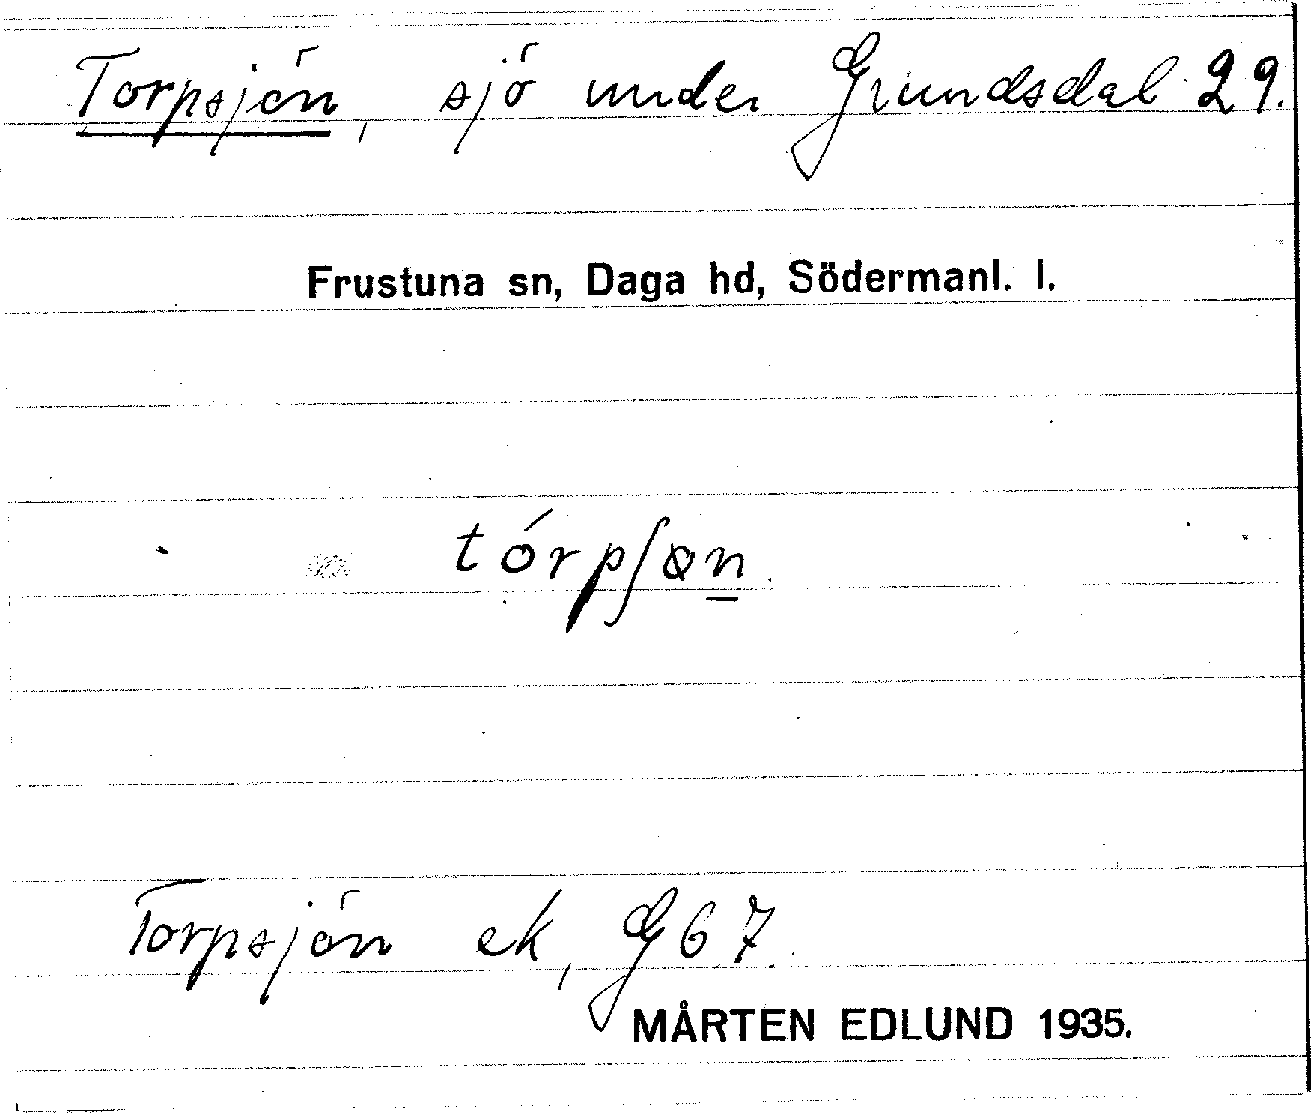 Torpsjön, sjö under Grundsdal 29.
Frustuna sn, Daga hd, Södermanl. l.
tórpʃøn
Torpsjön ek, G67.
MÅRTEN EDLUND 1935.